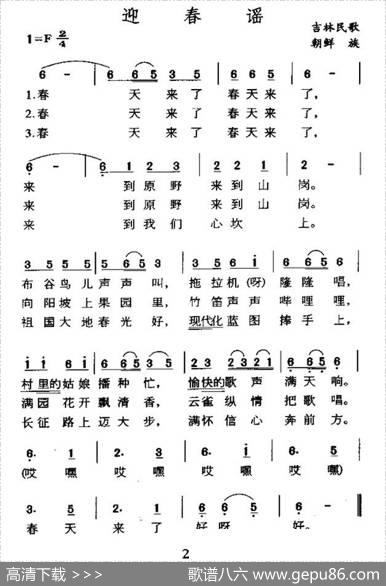 迎春谣
1=F 2/4
吉林民歌
朝鲜族
6 - 6 6 5 3 5 6 6 6 5 6 -
1.春 天来了 春天来了,
2.春 天来了 春天来了,
3.春 天来了 春天来了,
6 - 6 1 2 3 2 2 2 1 6 -
来 到原野 来到山岗。
来 到原野 来到山岗。
来 到我们 心坎上。
3 5 5 5 6 5 3 3 5 6 i 6 5 3
布谷鸟儿声声叫, 拖拉机(呀)隆隆唱,
向阳坡上果园里, 竹笛声声哗哩哩,
祖国大地春光好, 现代化蓝图捧手上,
i i 6 i 6 5 3 5 2 3 2 3 2 1 6 6 5 6
村里的姑娘播种忙, 愉快的歌声满天响。
满园花开飘清香, 云雀纵情把歌唱。
长征路上迈大步, 满怀信心奔前方。
6. 1 2. 3 6. i 6. 5 6 -
(哎嘿 哎嘿 哎嘿 哎嘿)
3. 5 2. 3 1 2 1 6 6 -
春天来了 好呀 好。
2
高清下载 >>>
歌谱八六 >>> www.gepu86.com